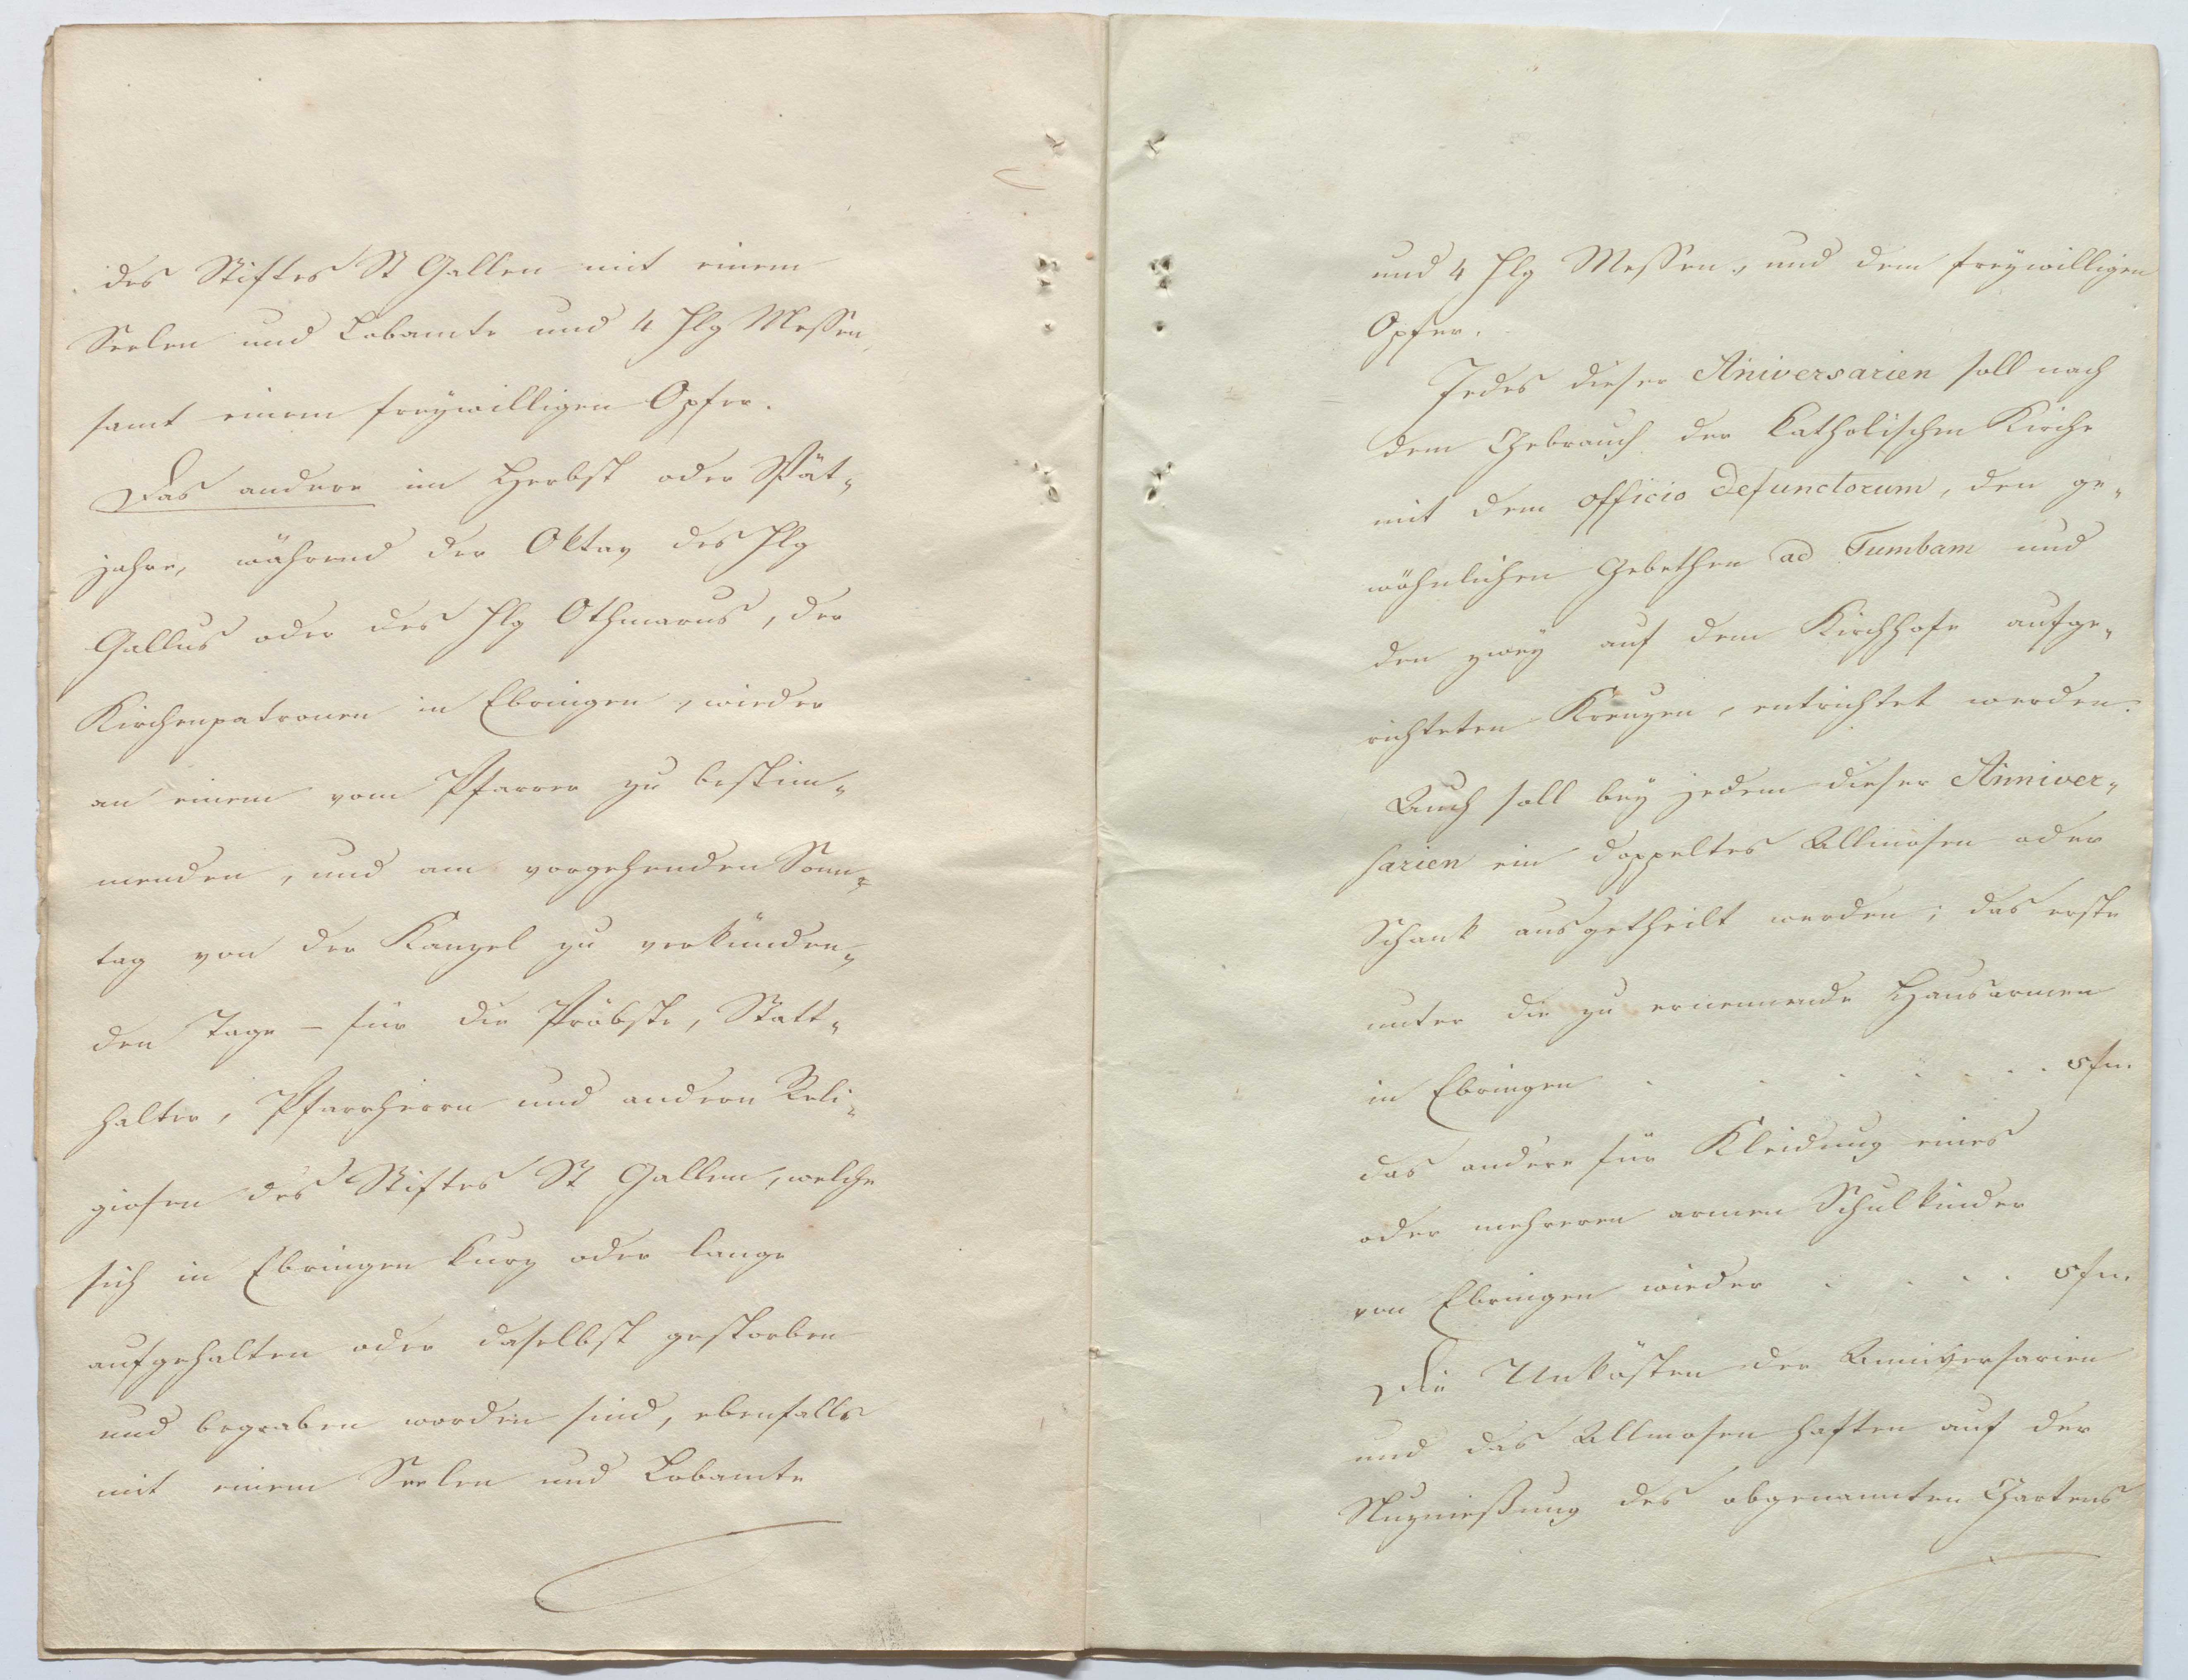 des Stiftes St Gallen mit einem
Seelen und Lobamte und 4 Hlg Messen,
samt einem freywilligen Opfer.
Das andere im Herbst oder Spät„
jahre, während der Oktav des Hlg
Gallus oder des Hlg Othmarus, der
Kirchenpatronen in Ebringen, wieder
an einem vom Pfarrer zu bestim„
menden, und am vorgehenden Sonn„
tag von der Kanzel zu verkünden„
den Tage – für die Pröbste, Statt„
halter, Pfarrherrn und andern Reli„
giosen des Stiftes St Gallen, welche
sich in Ebringen kurz oder lange
aufgehalten oder daselbst gestorben
und begraben worden sind, ebenfalls
mit einem Seelen und Lobamte
und 4 Hlg Messen, und dem freywilligen
Opfer.
Jedes dieser Aniversarien soll nach
dem Gebrauch der katholischen Kirche
mit dem officio Defunctorum, den ge„
wöhnlichen Gebethen ad Tumbam und
den zwey auf dem Kirchhofe aufge„
richteten Kreuzen, entrichtet werden.
Auch soll bey jedem dieser Anniver„
sarien ein doppeltes Allmosen oder
Schank ausgetheilt werden; das erste
unter die zu ernennende Hausarmen
in Ebringen . . . . . . . 5 fn.
das andere für Kleidung eines
oder mehreren armen Schulkinder
von Ebringen wieder . . . . 5 fn.
Die Unkösten der Anniversarien
und das Allmosen haften auf der
Nuznießung des obgenannten Gartens